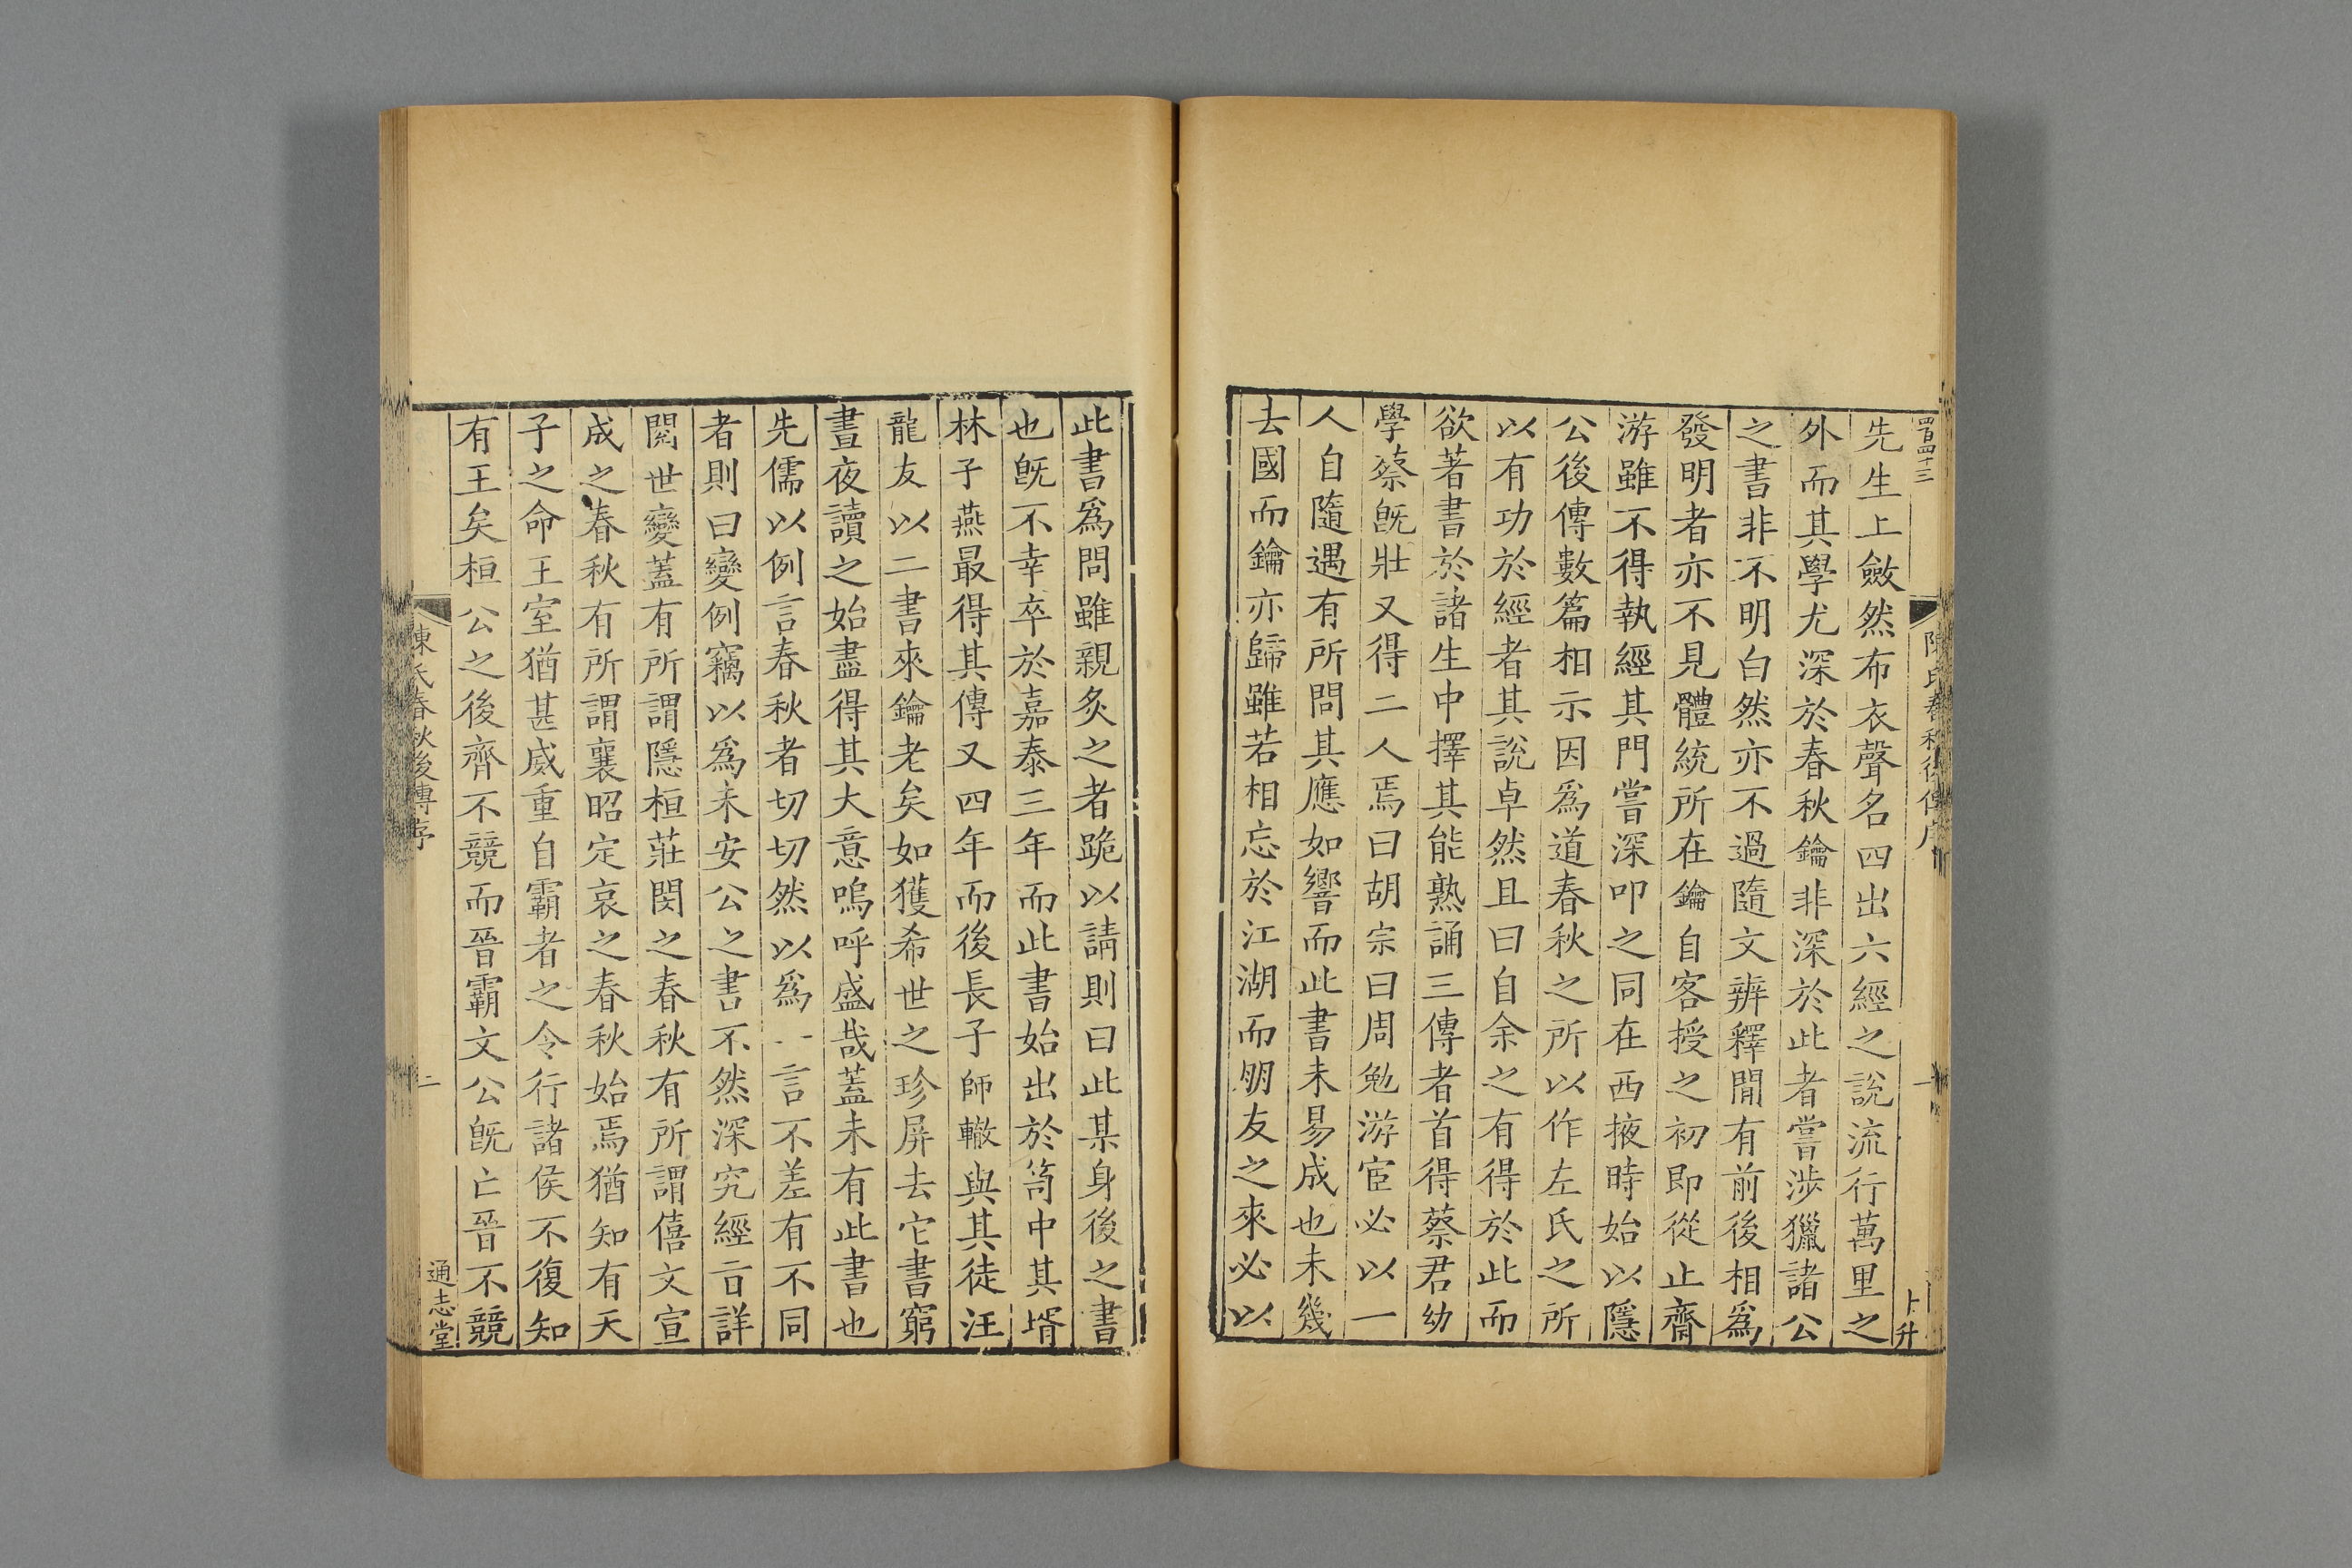 四百四十三
陳氏春秋後傳序
一
卜升
先生上斂然布衣聲名四出六經之說流行萬里之
外而其學尤深於春秋鑰非深於此者嘗涉獵諸公
之書非不明白然亦不過隨文辨釋閒有前後相爲
發明者亦不見體統所在鑰自客授之初即從止齋
游雖不得執經其門嘗深叩之同在西掖時始以隱
公後傳數篇相示因爲道春秋之所以作左氏之所
以有功於經者其說卓然且曰自余之有得於此而
欲著書於諸生中擇其能熟誦三傳者首得蔡君幼
學蔡旣壯又得二人焉曰胡宗曰周勉游宦必以一
人自隨遇有所問其應如響而此書未易成也未幾
去國而鑰亦歸雖若相忘於江湖而朋友之來必以
此書爲問雖親炙之者跪以請則曰此某身後之書
也旣不幸卒於嘉泰三年而此書始出於笥中其壻
林子燕最得其傳又四年而後長子師轍與其徒汪
龍友以二書來鑰老矣如獲希世之珍屏去它書窮
晝夜讀之始盡得其大意嗚呼盛哉蓋未有此書也
先儒以例言春秋者切切然以爲一言不差有不同
者則曰變例竊以爲未安公之書不然深究經旨詳
閱世變蓋有所謂隱桓莊閔之春秋有所謂僖文宣
成之春秋有所謂襄昭定哀之春秋始焉猶知有天
子之命王室猶甚威重自霸者之令行諸侯不復知
有王矣桓公之後齊不競而晉霸文公旣亡晉不競
陳氏春秋後傳序
二
通志堂